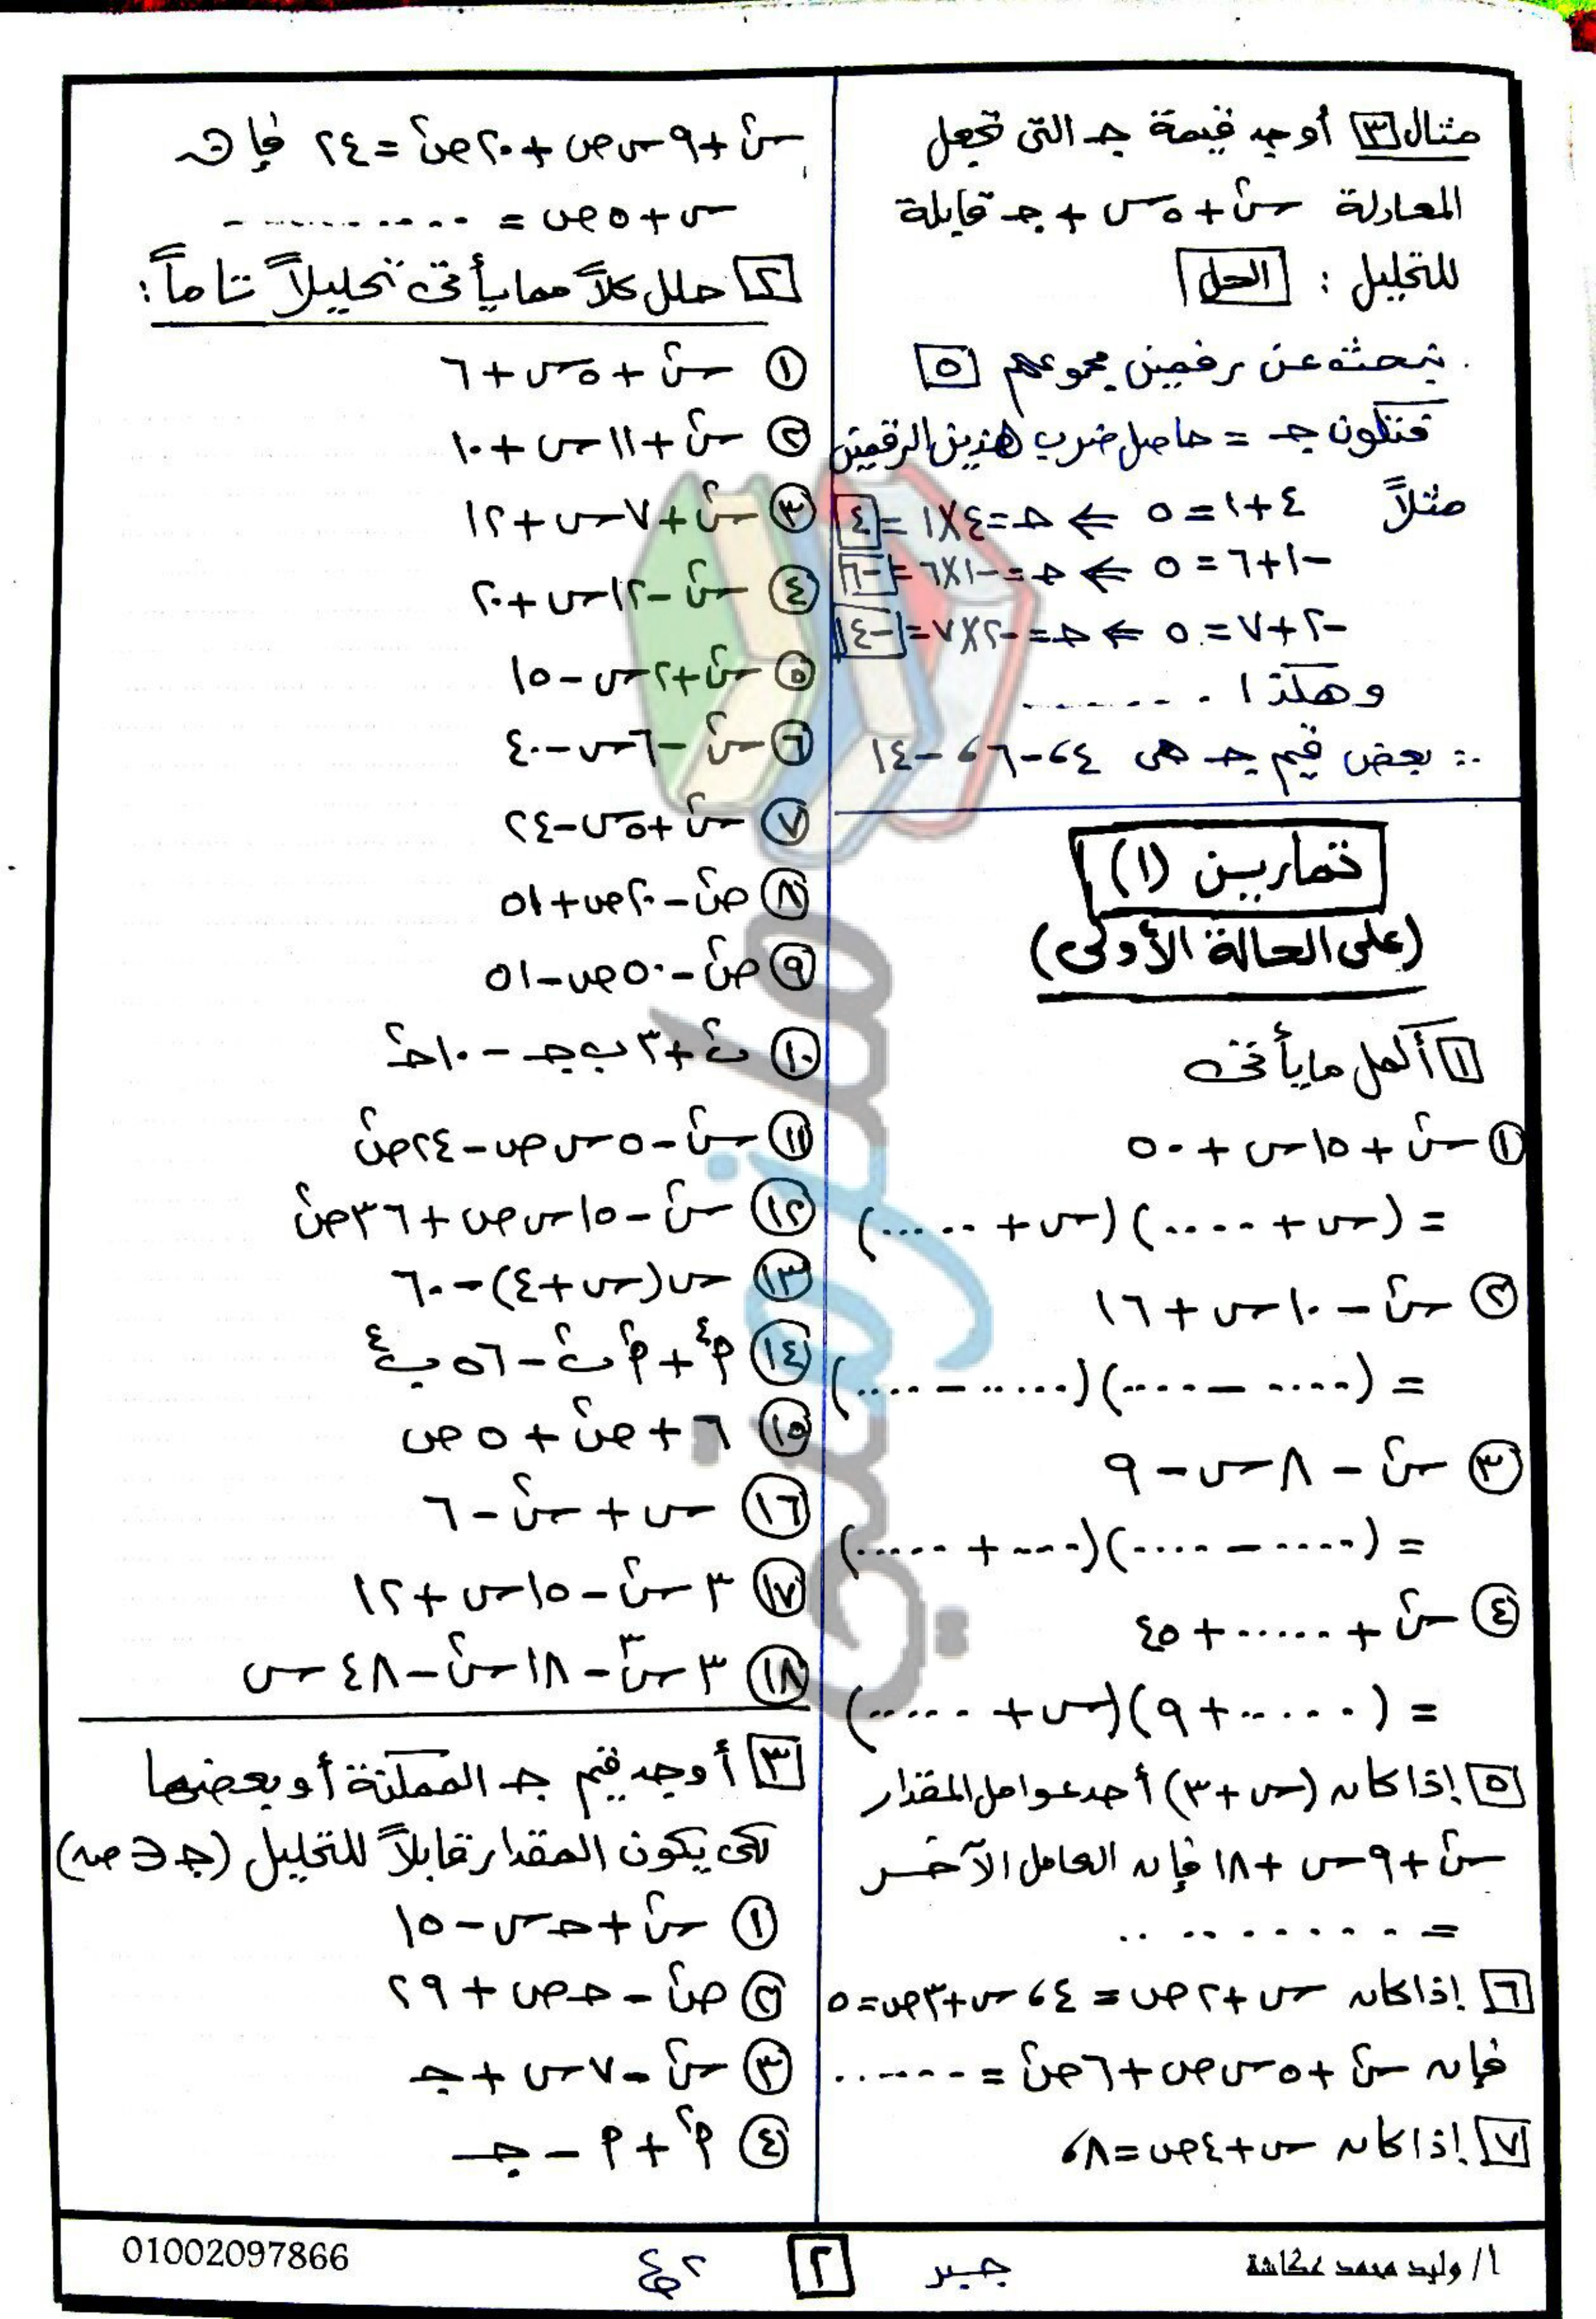 مثال [٣] أوجد قيمة جـ التى تجعل
المعادلة س٢ + ٥س + جـ قابلة
للتحليل : [الحل]
نبحث عن رقمين مجموعهم [٥]
فتكون جـ = حاصل ضرب هذين الرقمين
مثلاً ٤+١=٥ ⇐ جـ=٤×١=[٤]
-١+٦=٥ ⇐ جـ=-١×٦=[-٦]
-٢+٧=٥ ⇐ جـ=-٢×٧=[-١٤]
وهكذا .......
∴ بعض قيم جـ هى ٤، -٦، -١٤
تمارين (١)
(على الحالة الأولى)
[١] أكمل ما يأتى
(١) س٢ + ١٥س + ٥٠
= (س + ....) (س + .....)
(٢) س٢ - ١٠س + ١٦
= (.... - ....) (..... - ....)
(٣) س٢ - ٨س - ٩
= (.... - ....) (.... + .....)
(٤) س٢ + ..... + ٤٥
= (..... + ٩) (س + .....)
[٥] إذا كان (س+٣) أحد عوامل المقدار
س٢ + ٩س + ١٨ فإن العامل الآخر
= ..........
[٦] إذا كان س + ٢ص = ٤، س+٣ص=٥
فإن س٢ + ٥س ص + ٦ص٢ = ......
[٧] إذا كان س+٤ص=٨،
س٢ + ٩س ص + ٢٠ص٢ = ٢٤ فإن
س + ٥ص = ..........
[٢] حلل كلاً مما يأتى تحليلاً تاماً :
(١) س٢ + ٥س + ٦
(٢) س٢ + ١١س + ١٠
(٣) س٢ + ٧س + ١٢
(٤) س٢ - ١٢س + ٢٠
(٥) س٢ + ٢س - ١٥
(٦) س٢ - ٦س - ٤٠
(٧) س٢ + ٥س - ٢٤
(٨) ص٢ - ٢٠ص + ٥١
(٩) ص٢ - ٥٠ص - ٥١
(١٠) ب٢ + ٣ب جـ - ١٠جـ٢
(١١) س٢ - ٥س ص - ٢٤ص٢
(١٢) س٢ - ١٥س ص + ٣٦ص٢
(١٣) س(س + ٤) - ٦٠
(١٤) م٤ + م٢ ب٢ - ٥٦ب٤
(١٥) ٦ + ص٢ + ٥ص
(١٦) س + س٢ - ٦
(١٧) ٣س٢ - ١٥س + ١٢
(١٨) ٣س٣ - ١٨س٢ - ٤٨س
[٣] أوجد قيم جـ الممكنة أو بعضها
لكى يكون المقدار قابلاً للتحليل (جـ ∈ صـ)
(١) س٢ + جـ س - ١٥
(٢) ص٢ - جـ ص + ٢٩
(٣) س٢ - ٧س + جـ
(٤) م٢ + م - جـ
أ/ وليد محمد عكاشة
جبر
[٢]
٢ع
01002097866
ملزمتي